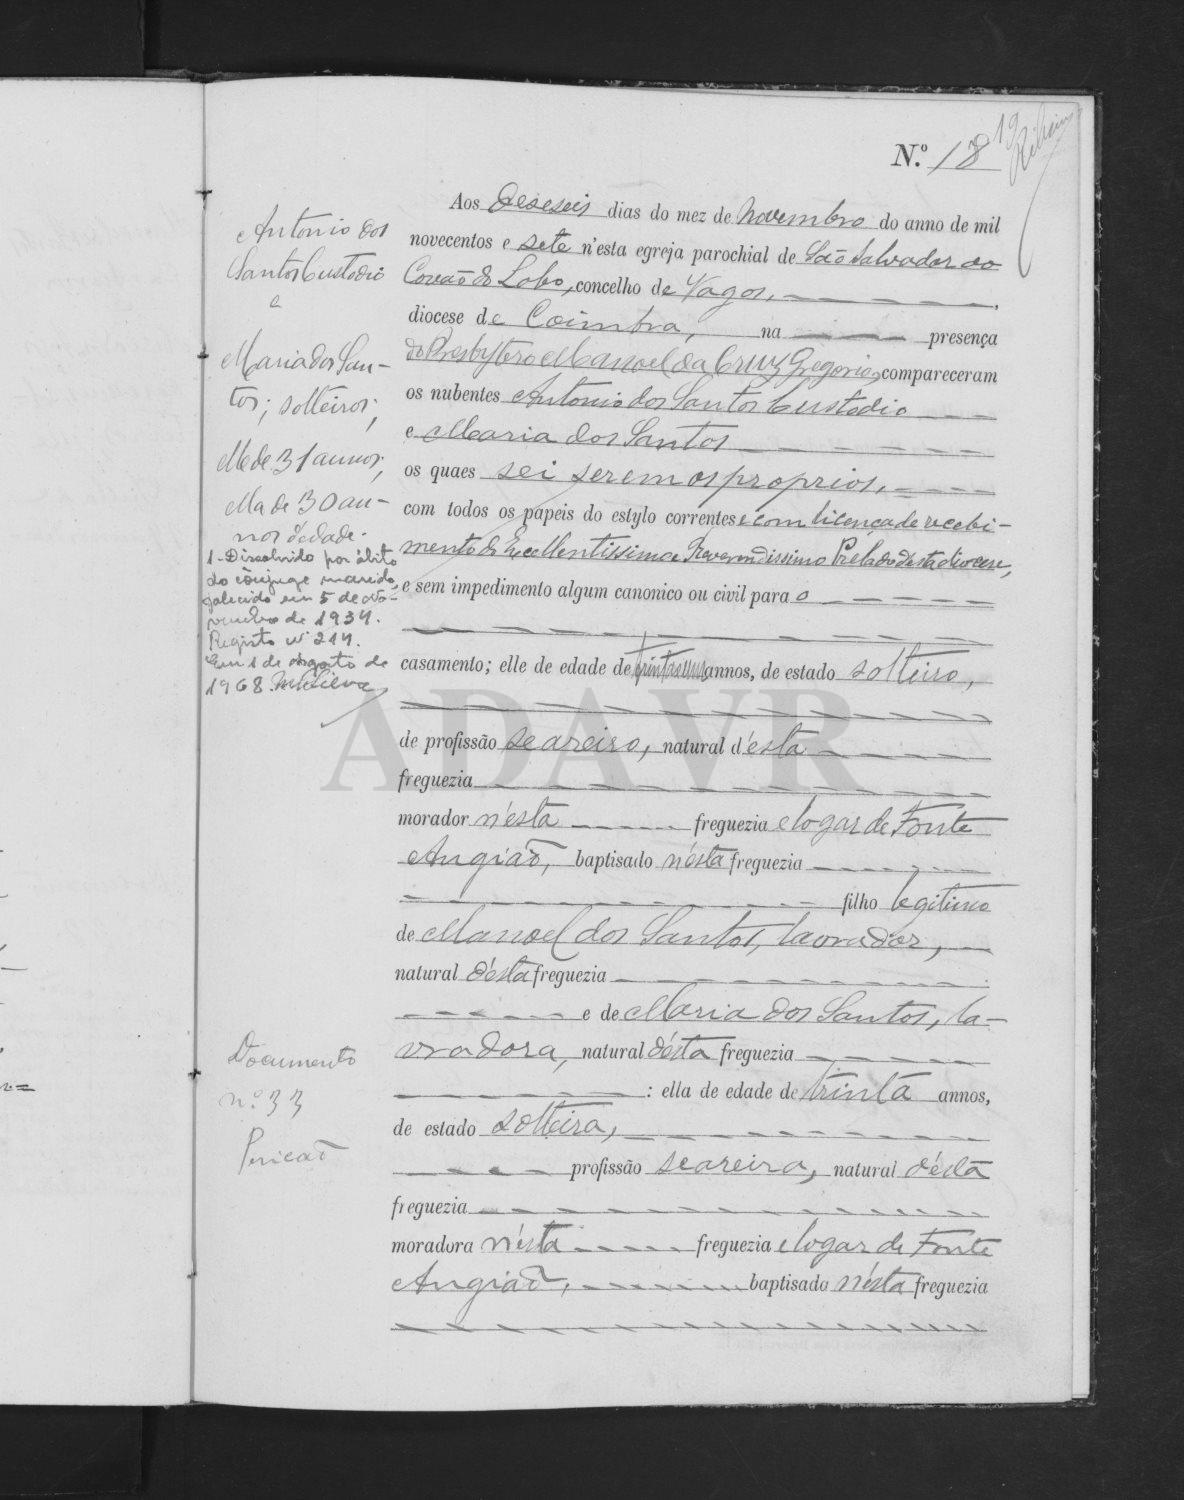 19
Ribeiro
N.º 18
Antonio dos
Santos Custodio
e
Maria dos San-
tos; solteiros;
Elle de 31 annos;
ella de 30 an-
nos d'edade.
1-Dissolvido por óbito
do cônjuge marido,
falecido em 5 de No-
vembro de 1934.
Registo nº 214.
Em 1 de Agosto de
1968. MSilva
Documento
n.º 33
Aos deseseis dias do mez de Novembro do anno de mil
novecentos e sete n'esta egreja parochial de São Salvador do
Covão do Lobo, concelho de Vagos,
diocese de Coimbra, na presença
do Presbytero Manoel da Cruz Gregorio, compareceram
os nubentes Antonio dos Santos Custodio
e Maria dos Santos
os quaes sei serem os proprios,
com todos os papeis do estylo correntes e com licença de recebi-
mento do Excellentissimo e Reverendissimo Prelado desta diocese,
e sem impedimento algum canonico ou civil para o
casamento; elle de edade de trinta e um annos, de estado solteiro,
de profissão seareiro, natural d'esta
freguezia
morador n'esta freguezia e logar de Fonte
Angião, baptisado n'esta freguezia
filho legitimo
de Manoel dos Santos, lavrador,
natural d'esta freguezia
e de Maria dos Santos, la-
vradora, natural d'esta freguezia
: ella de edade de trinta annos,
de estado solteira,
profissão seareira, natural d'esta
freguezia
moradora n'esta freguezia e logar de Fonte
Angião, baptisada n'esta freguezia
ADAVR